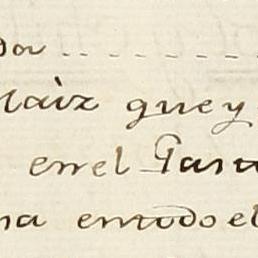 dor
Maiz que y
en el Gasto
na en todo el